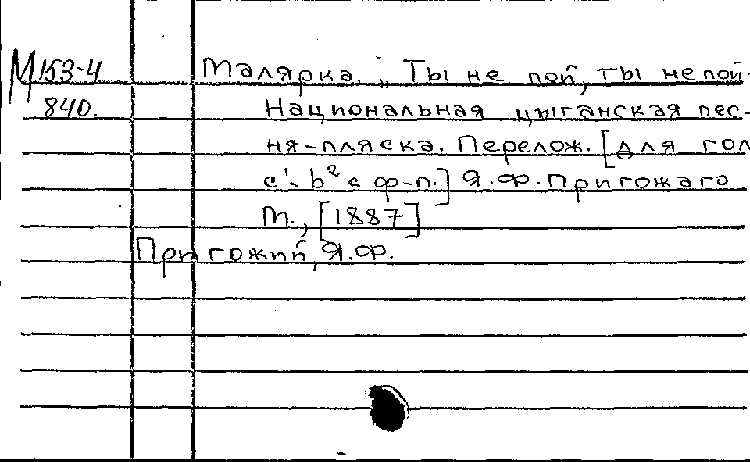 М153-4 Малярка. „ Ты не пой, ты не пой-
840. Национальная цыганская пес-
ня-пляска. Перелож. [для гол
c'-b² с ф-п.] Я.Ф. Пригожаго
М., [1887]
Пригожий, Я.Ф.